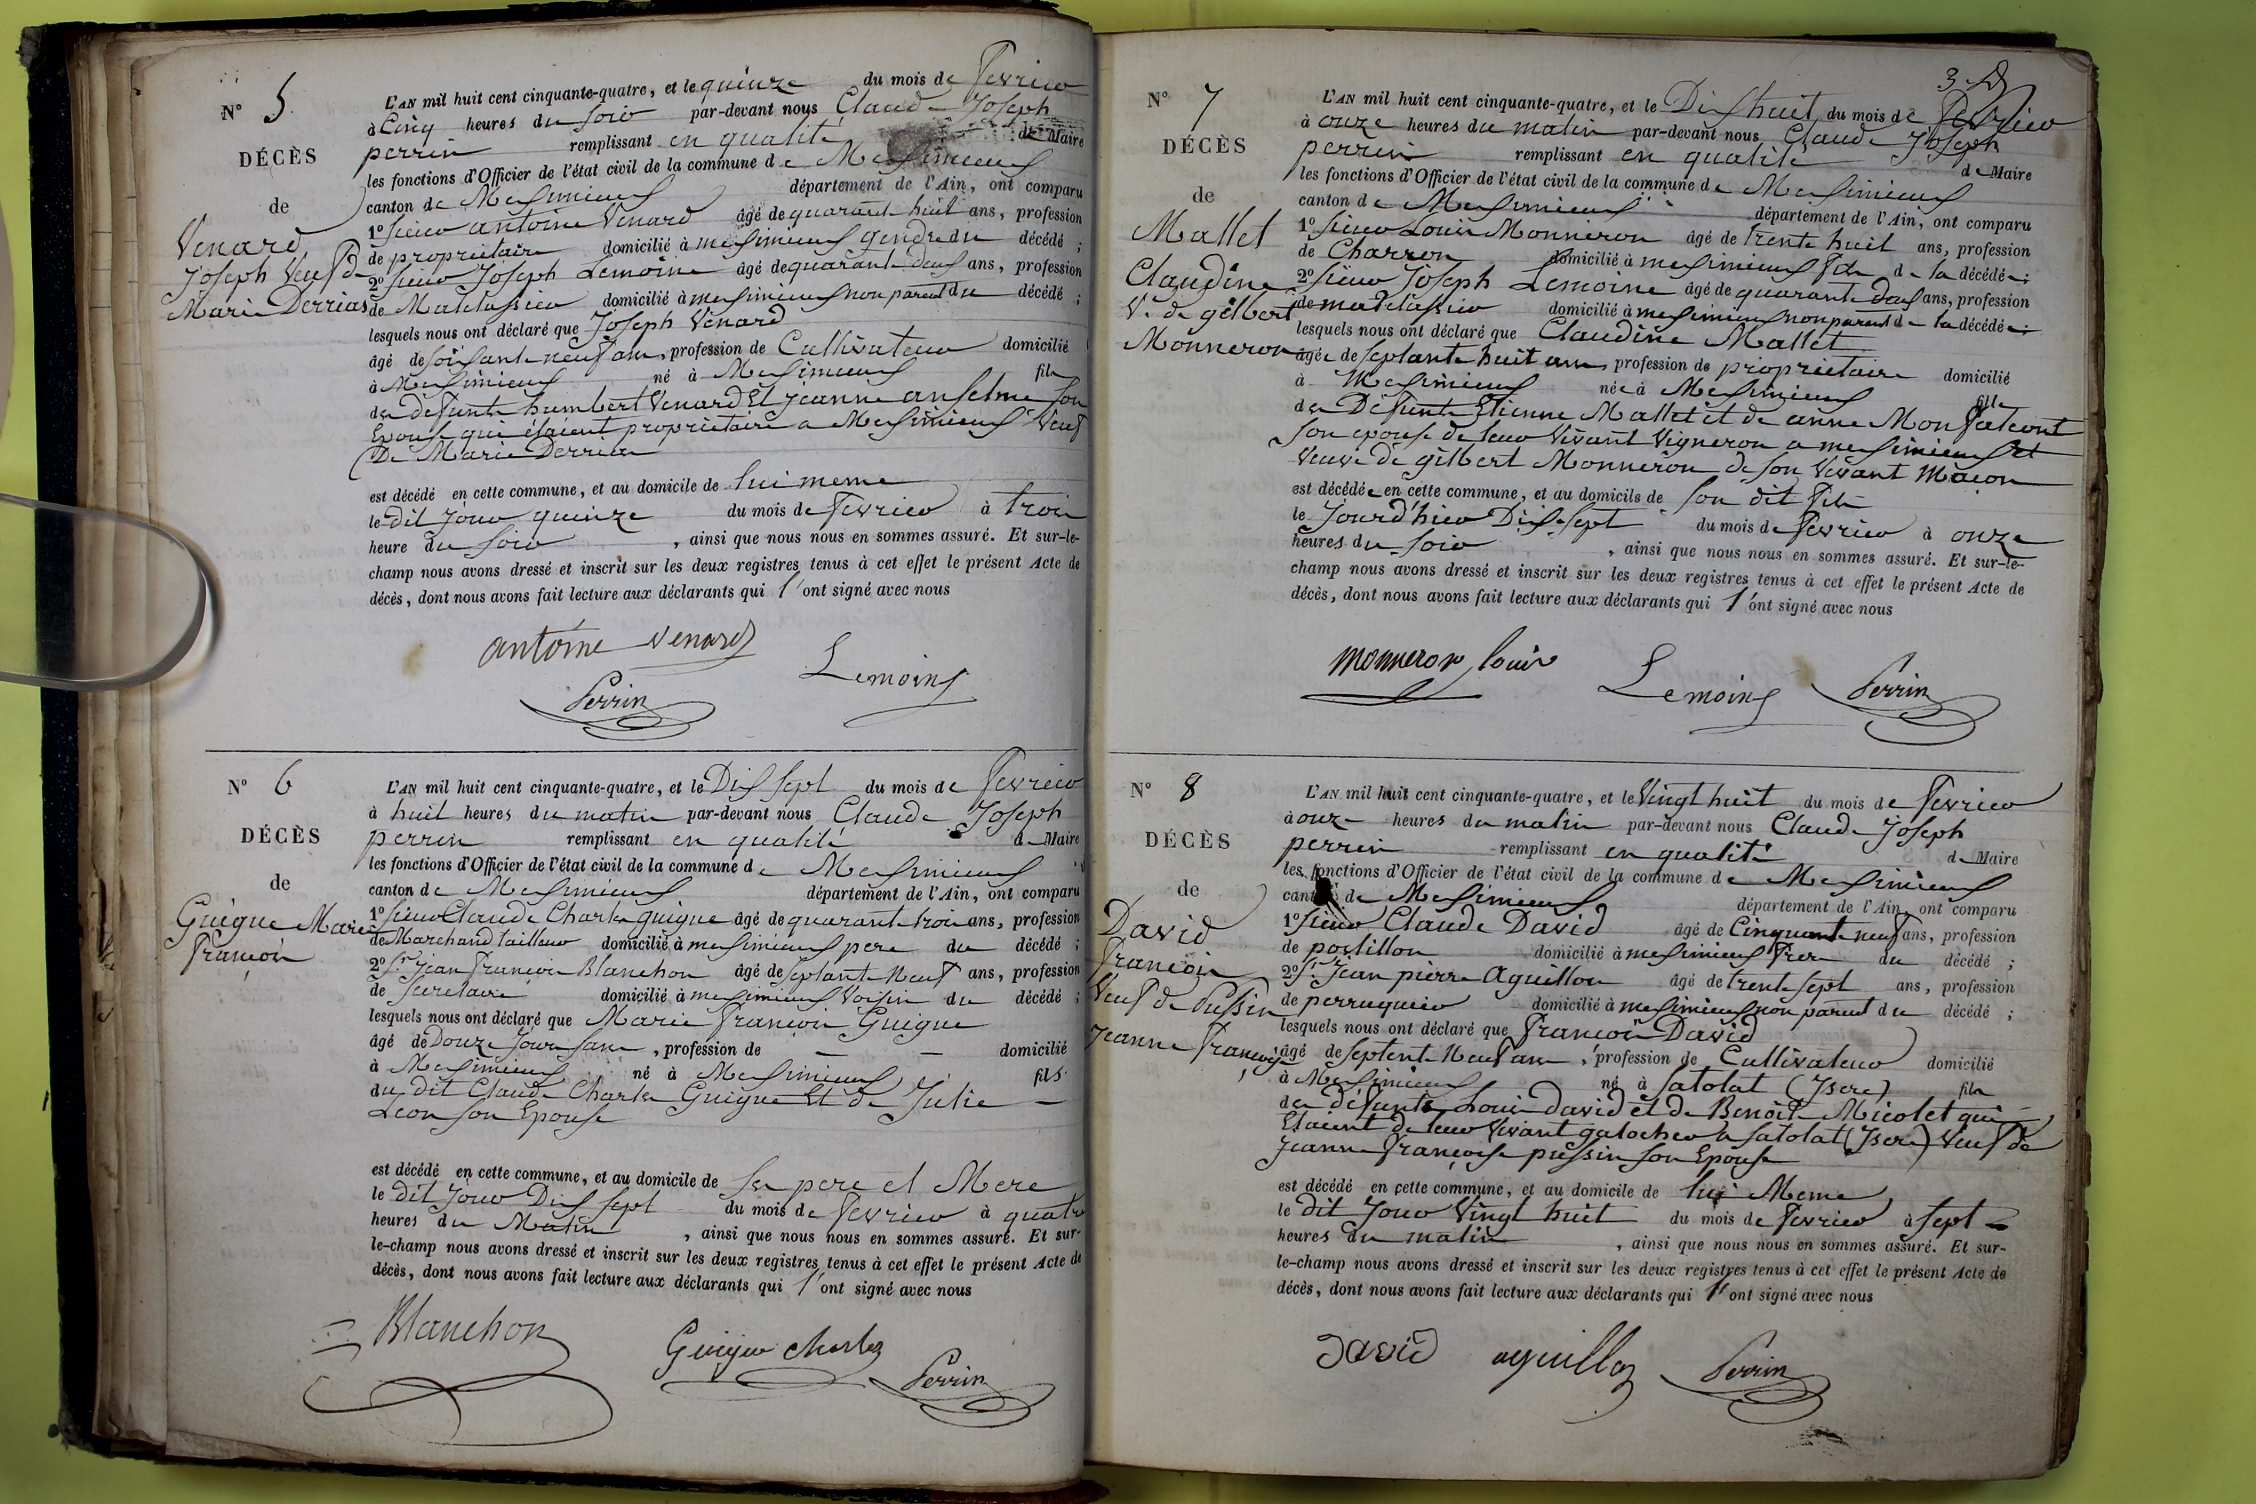 N° 5
DÉCÈS
de
Venard
Joseph Veuf de
Marie Derrias
L'AN mil huit cent cinquante-quatre, et le quinze du mois de Fevrier
à Cinq heures du soir par-devant nous Claude Joseph
perrin remplissant en qualité de Maire
les fonctions d'Officier de l'état civil de la commune de Meximieux
canton de Meximieux département de l'Ain, ont comparu
1° sieur antoine Venard âgé de quarante huit ans, profession
de propriétaire domicilié à meximieux gendre du décédé ;
2° sieur Joseph Lemoine âgé de quarante deux ans, profession
de Matelassier domicilié à meximieux non parent du décédé ;
lesquels nous ont déclaré que Joseph Venard
âgé de soixante neuf ans, profession de Cultivateur domicilié
à Meximieux né à Meximieux fils
des defunts humbert Venard Et jeanne anselme son
Epouse qui étaient propriétaire a Meximieux Veuf
De Marie Derrias
est décédé en cette commune, et au domicile de lui meme
le dit jour quinze du mois de Fevrier à trois
heure du soir , ainsi que nous nous en sommes assuré. Et sur-le-
champ nous avons dressé et inscrit sur les deux registres tenus à cet effet le présent Acte de
décès, dont nous avons fait lecture aux déclarants qui l'ont signé avec nous
antoine venard
Lemoine
Perrin
N° 6
DÉCÈS
de
Guigue Marie
François
L'AN mil huit cent cinquante-quatre, et le Dix sept du mois de Fevrier
à huit heures du matin par-devant nous Claude Joseph
perrin remplissant en qualité de Maire
les fonctions d'Officier de l'état civil de la commune de Meximieux
canton de Meximieux département de l'Ain, ont comparu
1° sieur Claude Charles guigue âgé de quarante trois ans, profession
de Marchand tailleur domicilié à meximieux pere du décédé ;
2° Sr jean françois Blanchon âgé de septante Neuf ans, profession
de Secretaire domicilié à meximieux Voisin du décédé ;
lesquels nous ont déclaré que Marie françois Guigue
âgé de Douze jours sans , profession de — — domicilié
à Meximieux né à Meximieux fils
du dit Claude Charles Guigue Et de Julie
Léon son Epouse
est décédé en cette commune, et au domicile de ses pere et Mere
le dit jour Dix sept du mois de fevrier à quatre
heures du Matin , ainsi que nous nous en sommes assuré. Et sur-
le-champ nous avons dressé et inscrit sur les deux registres tenus à cet effet le présent Acte de
décès, dont nous avons fait lecture aux déclarants qui l'ont signé avec nous
Blanchon
Guigue Charles
Perrin
3
N° 7
DÉCÈS
de
Mallet
Claudine
Ve de gilbert
Monneron
L'AN mil huit cent cinquante-quatre, et le Dix huit du mois de Fevrier
à onze heures du matin par-devant nous Claude Joseph
perrin remplissant en qualité de Maire
les fonctions d'Officier de l'état civil de la commune de Meximieux
canton de Meximieux département de l'Ain, ont comparu
1° sieur Louis Monneron âgé de trente huit ans, profession
de Charron domicilié à meximieux fils de la décédée ;
2° sieur Joseph Lemoine âgé de quarante deux ans, profession
de matelassier domicilié à meximieux non parent de la décédée ;
lesquels nous ont déclaré que Claudine Mallet
âgée de septante huit ans, profession de propriétaire domicilié
à Meximieux née à Meximieux fille
des Défunts Etienne Mallet et de anne Monfalcont
son epouse de leur Vivant Vigneron a meximieux et
Veuve de gilbert Monneron de son Vivant Maçon
est décédée en cette commune, et au domicile de son dit fils
le jourd'hier Dix-sept du mois de fevrier à onze
heures du soir , ainsi que nous nous en sommes assuré. Et sur-le-
champ nous avons dressé et inscrit sur les deux registres tenus à cet effet le présent Acte de
décès, dont nous avons fait lecture aux déclarants qui l'ont signé avec nous
monneron louis
Lemoine
Perrin
N° 8
DÉCÈS
de
David
François
Veuf de Pussin
jeanne françoise
L'AN mil huit cent cinquante-quatre, et le Vingt huit du mois de Fevrier
à onze heures du matin par-devant nous Claude Joseph
perrin remplissant en qualité de Maire
les fonctions d'Officier de l'état civil de la commune de Meximieux
canton de Meximieux département de l'Ain, ont comparu
1° sieur Claude David âgé de Cinquante neuf ans, profession
de postillon domicilié à meximieux frere du décédé ;
2° Sr jean pierre aguillon âgé de trente sept ans, profession
de perruquier domicilié à meximieux non parent du décédé ;
lesquels nous ont déclaré que François David
âgé de septente Neuf ans , profession de Cultivateur domicilié
à Meximieux né à satolat (Isere) fils
des défunts Louis David et de Benoite Micolet qui
Etaient de leur Vivant galocher a satolat (Isere) Veuf de
jeanne françoise pussin son Epouse
est décédé en cette commune, et au domicile de lui Meme
le dit jour Vingt huit du mois de Fevrier à sept
heures du matin , ainsi que nous nous en sommes assuré. Et sur-
le-champ nous avons dressé et inscrit sur les deux registres tenus à cet effet le présent Acte de
décès, dont nous avons fait lecture aux déclarants qui l'ont signé avec nous
David
aguillon
Perrin